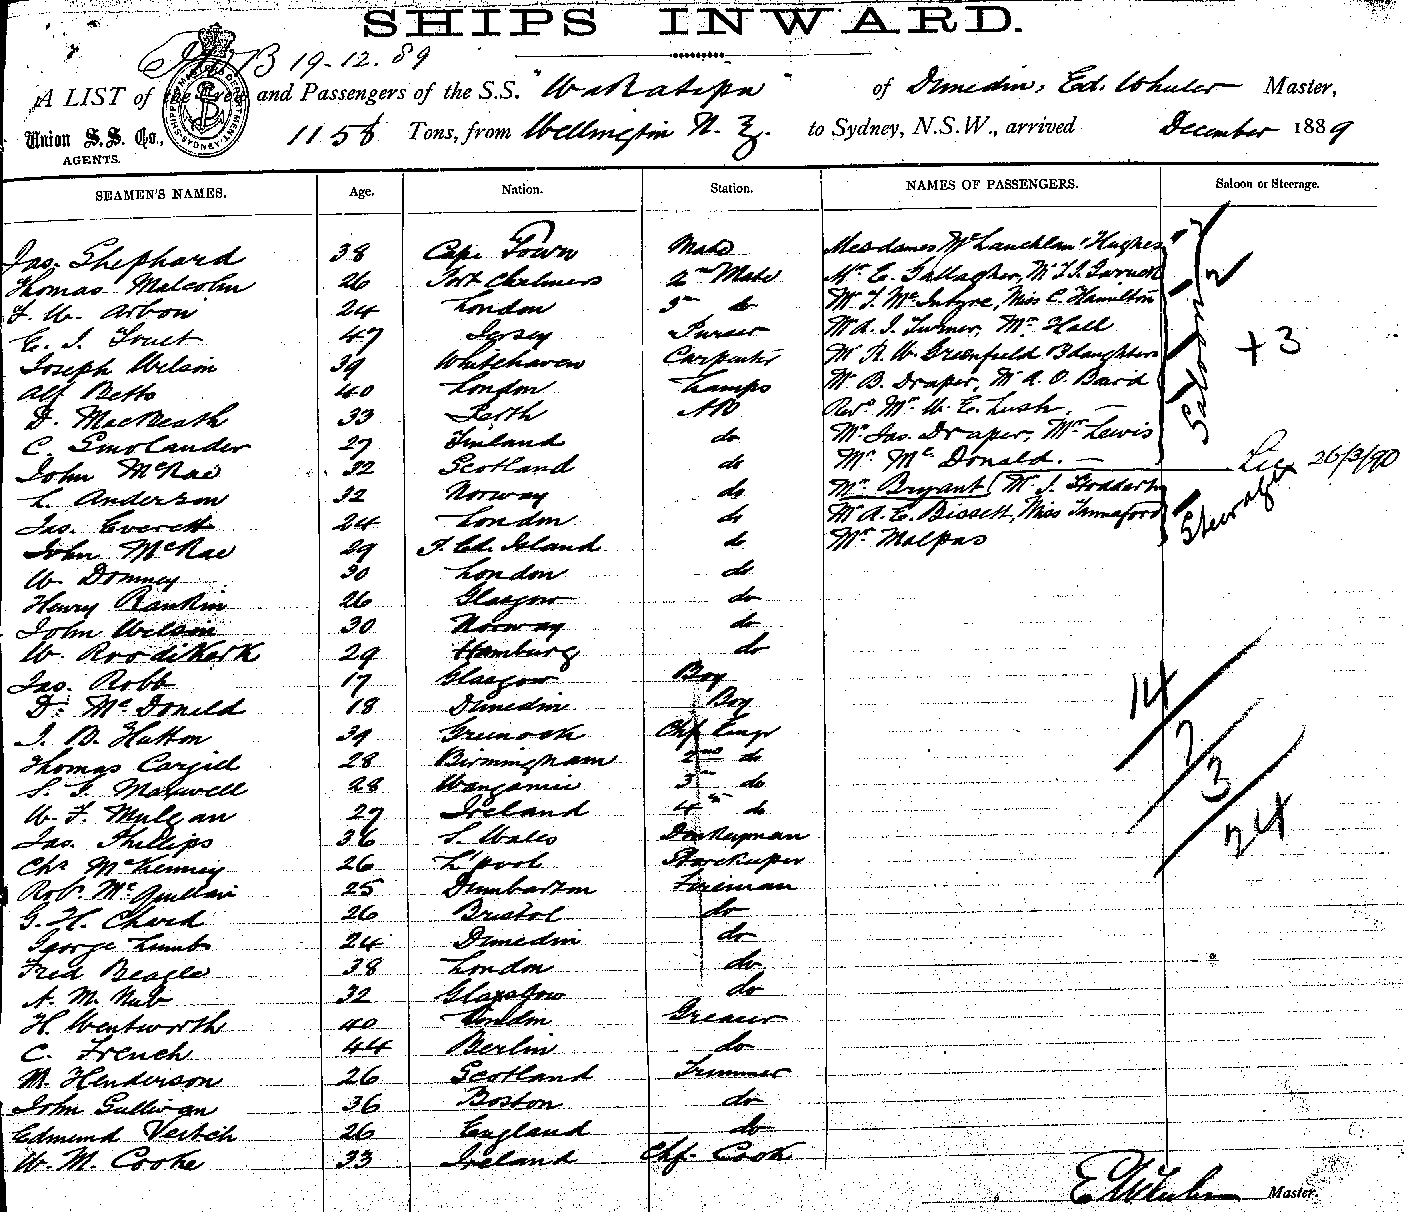 SHIPS INWARD.
19-12-89
A LIST of the Crew and Passengers of the S.S. "Wakatipu" of Dunedin, Ed. Wheeler Master,
Union S.S. Co., AGENTS. 1158 Tons, from Wellington N.Z. to Sydney, N.S.W., arrived December 1889
SEAMEN'S NAMES. Age. Nation. Station. NAMES OF PASSENGERS. Saloon or Steerage.
Jas. Shephard 38 Cape Town Mate Mesdames McLauchlan, Hughes
Thomas Malcolm 26 Port Chalmers 2nd Mate Mr. E. Gallagher, Mr T.J.
F. W. Arbon 24 London 3rd do Mr. T. McIntyre, Miss C. Hamilton 2
C. J. 47 Jersey Purser Mr A. J. Turner, Mr. Hall
Joseph Wilson 39 Whitehaven Carpenter Mr R. W. Greenfield & daughters Saloon + 3
Alf Betts 40 London Lamps Mr. B. Draper, Mr A. O. Baird
D. MacBeath 33 Perth AB Revd. Mr. W. E. Lush.
C. Smolander 27 Finland do Mr. Jas. Draper, Mr. Lewis
John McRae 32 Scotland do Mr. Mc Donald.
L. Anderson 32 Norway do Mr. Bryant, Mr J. Stoddart 26/3/90
Jas. Everett 24 London do Mr A. E. Bissett, Miss Steerage
John McRae 29 P. Ed. Island do Mr. Malpas
W. Domney 30 London do
Henry Rankin 26 Glasgow do
John Wilson 30 Norway do
W. Roodikark 29 Hamburg do
Jas. Robb 17 Glasgow Boy
D. McDoneld 18 Dunedin Boy 14
J. B. Hutton 39 Greenock Chf Engr 2
Thomas Cargill 28 Birmingham 2nd do 3
S. J. Maxwell 28 Wanganui 3rd do
W. F. Mulgan 27 Ireland 4th do 24
Jas. Phillips 36 S. Wales Donkeyman
Chs McKenney 26 L'pool Storekeeper
Robt. 25 Dumbarton Fireman
G. H. Chard 26 Bristol do
George Lumbs 24 Dunedin do
Fred Beagle 38 London do
A. M. 32 Glasgow do
H. Wentworth 40 London Greaser
C. French 44 Berlin do
M. Henderson 26 Scotland Trimmer
John Sullivan 36 Boston do
Edmund Veitch 26 England do
W. M. Cooke 33 Ireland Chf. Cook
E Wheeler Master.